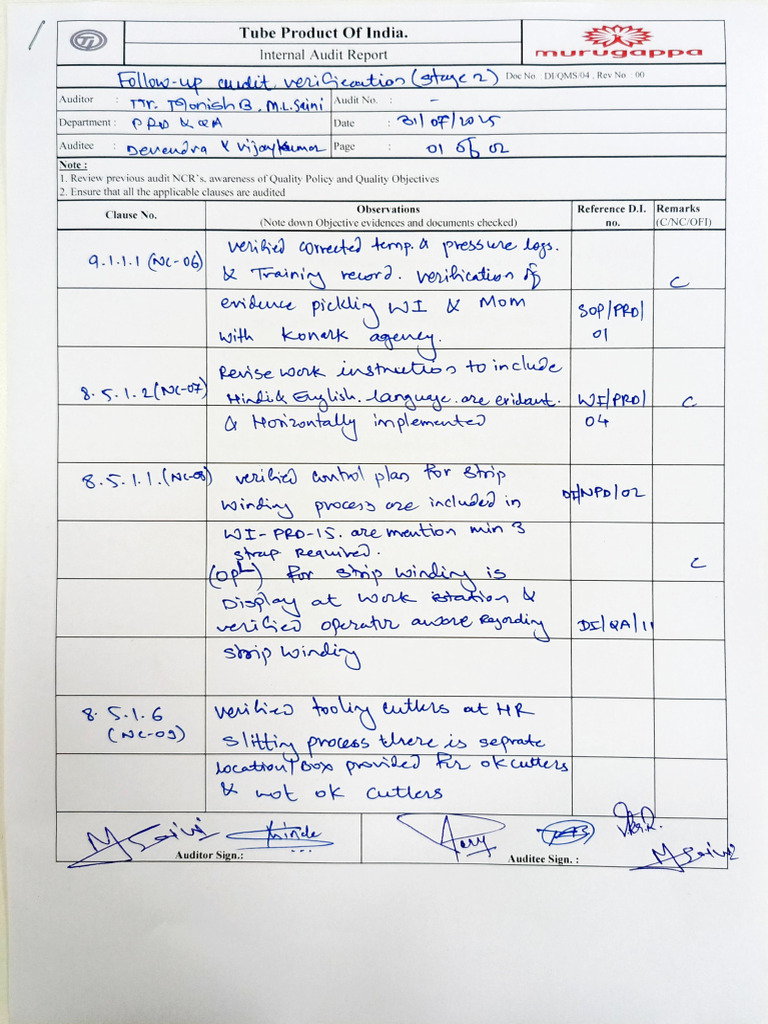 Tube Product Of India.
Internal Audit Report
murugappa
Follow-up audit verification (stage 2) Doc No : DI/QMS/04 , Rev No : 00
Auditor : Mr. Monish B, M.L. Saini Audit No. : -
Department : PRD & QA Date : 31/07/2025
Auditee : Devendra & Vijaykumar Page : 01 of 02
Note :
1. Review previous audit NCR's, awareness of Quality Policy and Quality Objectives
2. Ensure that all the applicable clauses are audited
Clause No. Observations Reference D.I. Remarks
(Note down Objective evidences and documents checked) no. (C/NC/OFI)
9.1.1.1 (NC-06) verified corrected temp. & pressure logs.
& Training record. verification of C
evidence pickling WI & MOM SOP/PRD/
with Konark agency. 01
8.5.1.2 (NC-07) Revise work instruction to include
Hindi & English. language. are evidant. WI/PRD/ C
& Horizontally implemented 04
8.5.1.1. (NC-08) verified control plan for strip
winding process are included in DI/NPD/02
WI-PRD-15. are mention min 3
strap required. C
(OPL) for strip winding is
Display at work station &
verified operator aware regarding DI/QA/11
strip winding
8.5.1.6 verified tooling cutters at HR
(NC-09) slitting process there is seprate
location/box provided for ok cutters
& not ok cutters
Auditor Sign.: Auditee Sign. :